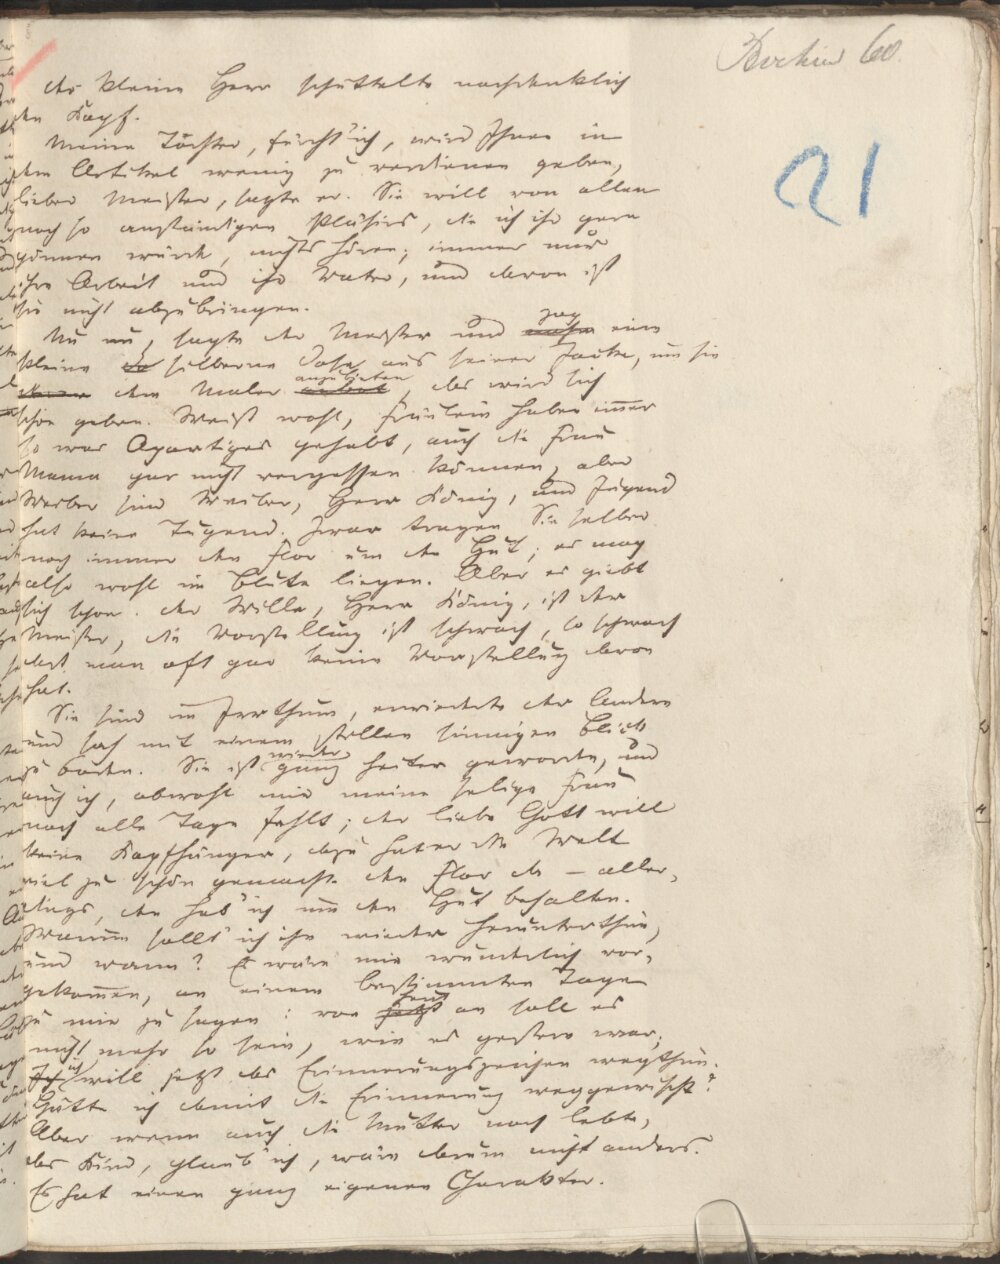 21
der kleine Herr schüttelte nachdenklich
den Kopf.
Meine Tochter, fürcht' ich, wird Ihnen in
dem Artikel wenig zu verdienen geben,
lieber Meister, sagte er. Sie will von allen
noch so anständigen Pläsirs, die ich ihr gern
gönnen würde, nichts hören; immer nur
ihre Arbeit und ihr Vater, und davon ist
sie nicht abzubringen.
Nu nu, sagte der Meister und zog eine
kleine silberne Dose aus seiner Jacke, um sie
dem Maler anzubieten, das wird sich
schon geben. Weiß wohl, Fräulein haben immer
so was Apartiges gehabt, auch die Frau
Mama gar nicht vergessen können, aber
Weiber sind Weiber, Herr König, und Jugend
hat keine Tugend. Zwar tragen Sie selber
noch immer den Flor um den Hut; es mag
also wohl im Blute liegen. Aber es giebt
sich schon. Der Wille, Herr König, ist der
Meister, die Vorstellung ist schwach, so schwach
daß man oft gar keine Vorstellung davon
hat.
Sie sind im Irrthum, erwiederte der Andere
und sah mit einem stillen sinnigen Blick
zu Boden. Sie ist wieder ganz heiter geworden, und
auch ich, obwohl mir meine selige Frau
noch alle Tage fehlt; der liebe Gott will
keine Kopfhänger, dazu hat er die Welt
viel zu schön gemacht. Den Flor da – aller-
dings, den hab' ich um den Hut behalten.
Warum sollt' ich ihn wieder herunterthun,
und wann? Es wäre mir wunderlich vor-
gekommen, an einem bestimmten Tage
zu mir zu sagen: von heut an soll es
nicht mehr so sein, wie es gestern war;
ich will jetzt das Erinnerungszeichen wegthun.
Hätte ich damit die Erinnerung weggewischt?
Aber wenn auch die Mutter noch lebte,
das Kind, glaub' ich, wäre darum nicht anders.
Es hat einen ganz eigenen Charakter.